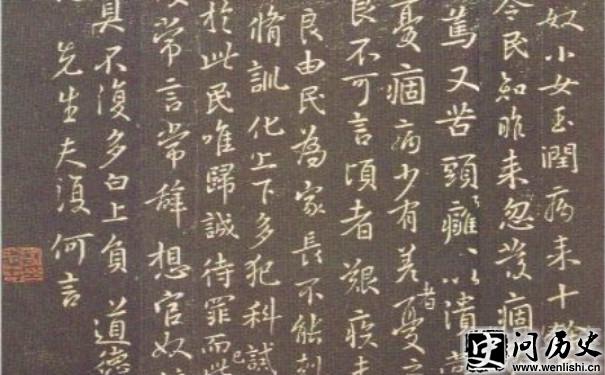 奴小女玉潤病来十
令民知昨来忽發痼
篤又苦頭癰〻以潰尚
憂痼病少有差者憂之
良不可言頃者艱疾未
良由民為家長不能剋
脩訓化上下多犯科誡
於此民唯歸誠待罪而已此
復常言常辭想官奴
具不復多白上負 道德
先生夫復何言
问历史
www.wenlishi.cn